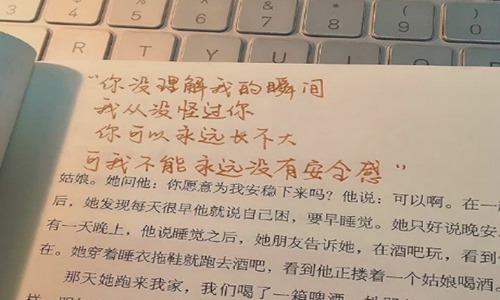 & 7
* 8
( 9
) 0
R T Y U I O P
“你没理解我的瞬间
我从没怪过你
你可以永远长不大
可我不能永远没有安全感”
姑娘。她问他：你愿意为我安稳下来吗？他说：可以啊。在一
后，她发现每天很早他就说自己困，要早睡觉。她只好说晚安
有一天晚上，他说睡觉之后，她朋友告诉她，在酒吧玩，看到
在。她穿着睡衣拖鞋就跑去酒吧，看到他正搂着一个姑娘喝酒
那天她跑来我家，我们喝了一箱啤酒